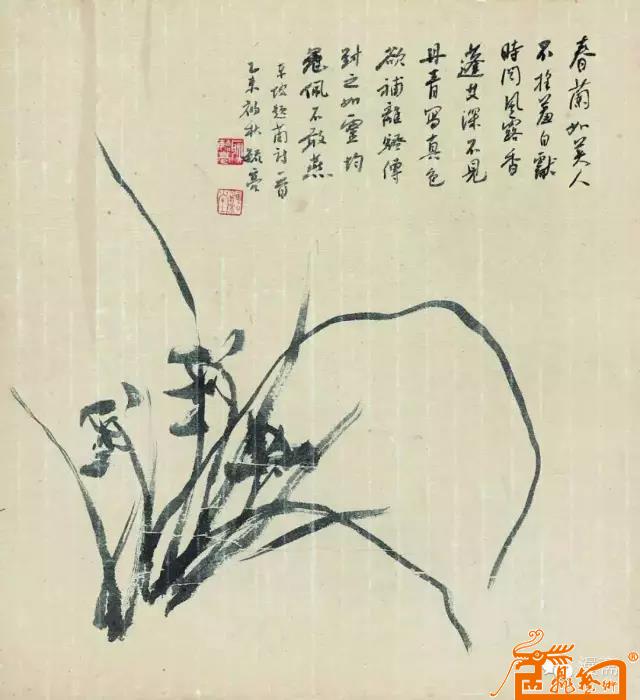 春蘭如美人
不採羞自獻
時聞風露香
蓬艾深不見
丹青寫真色
欲補離騷傳
對之如靈均
冠佩不敢燕
東坡題蘭詩一首
乙未初秋 毓亮